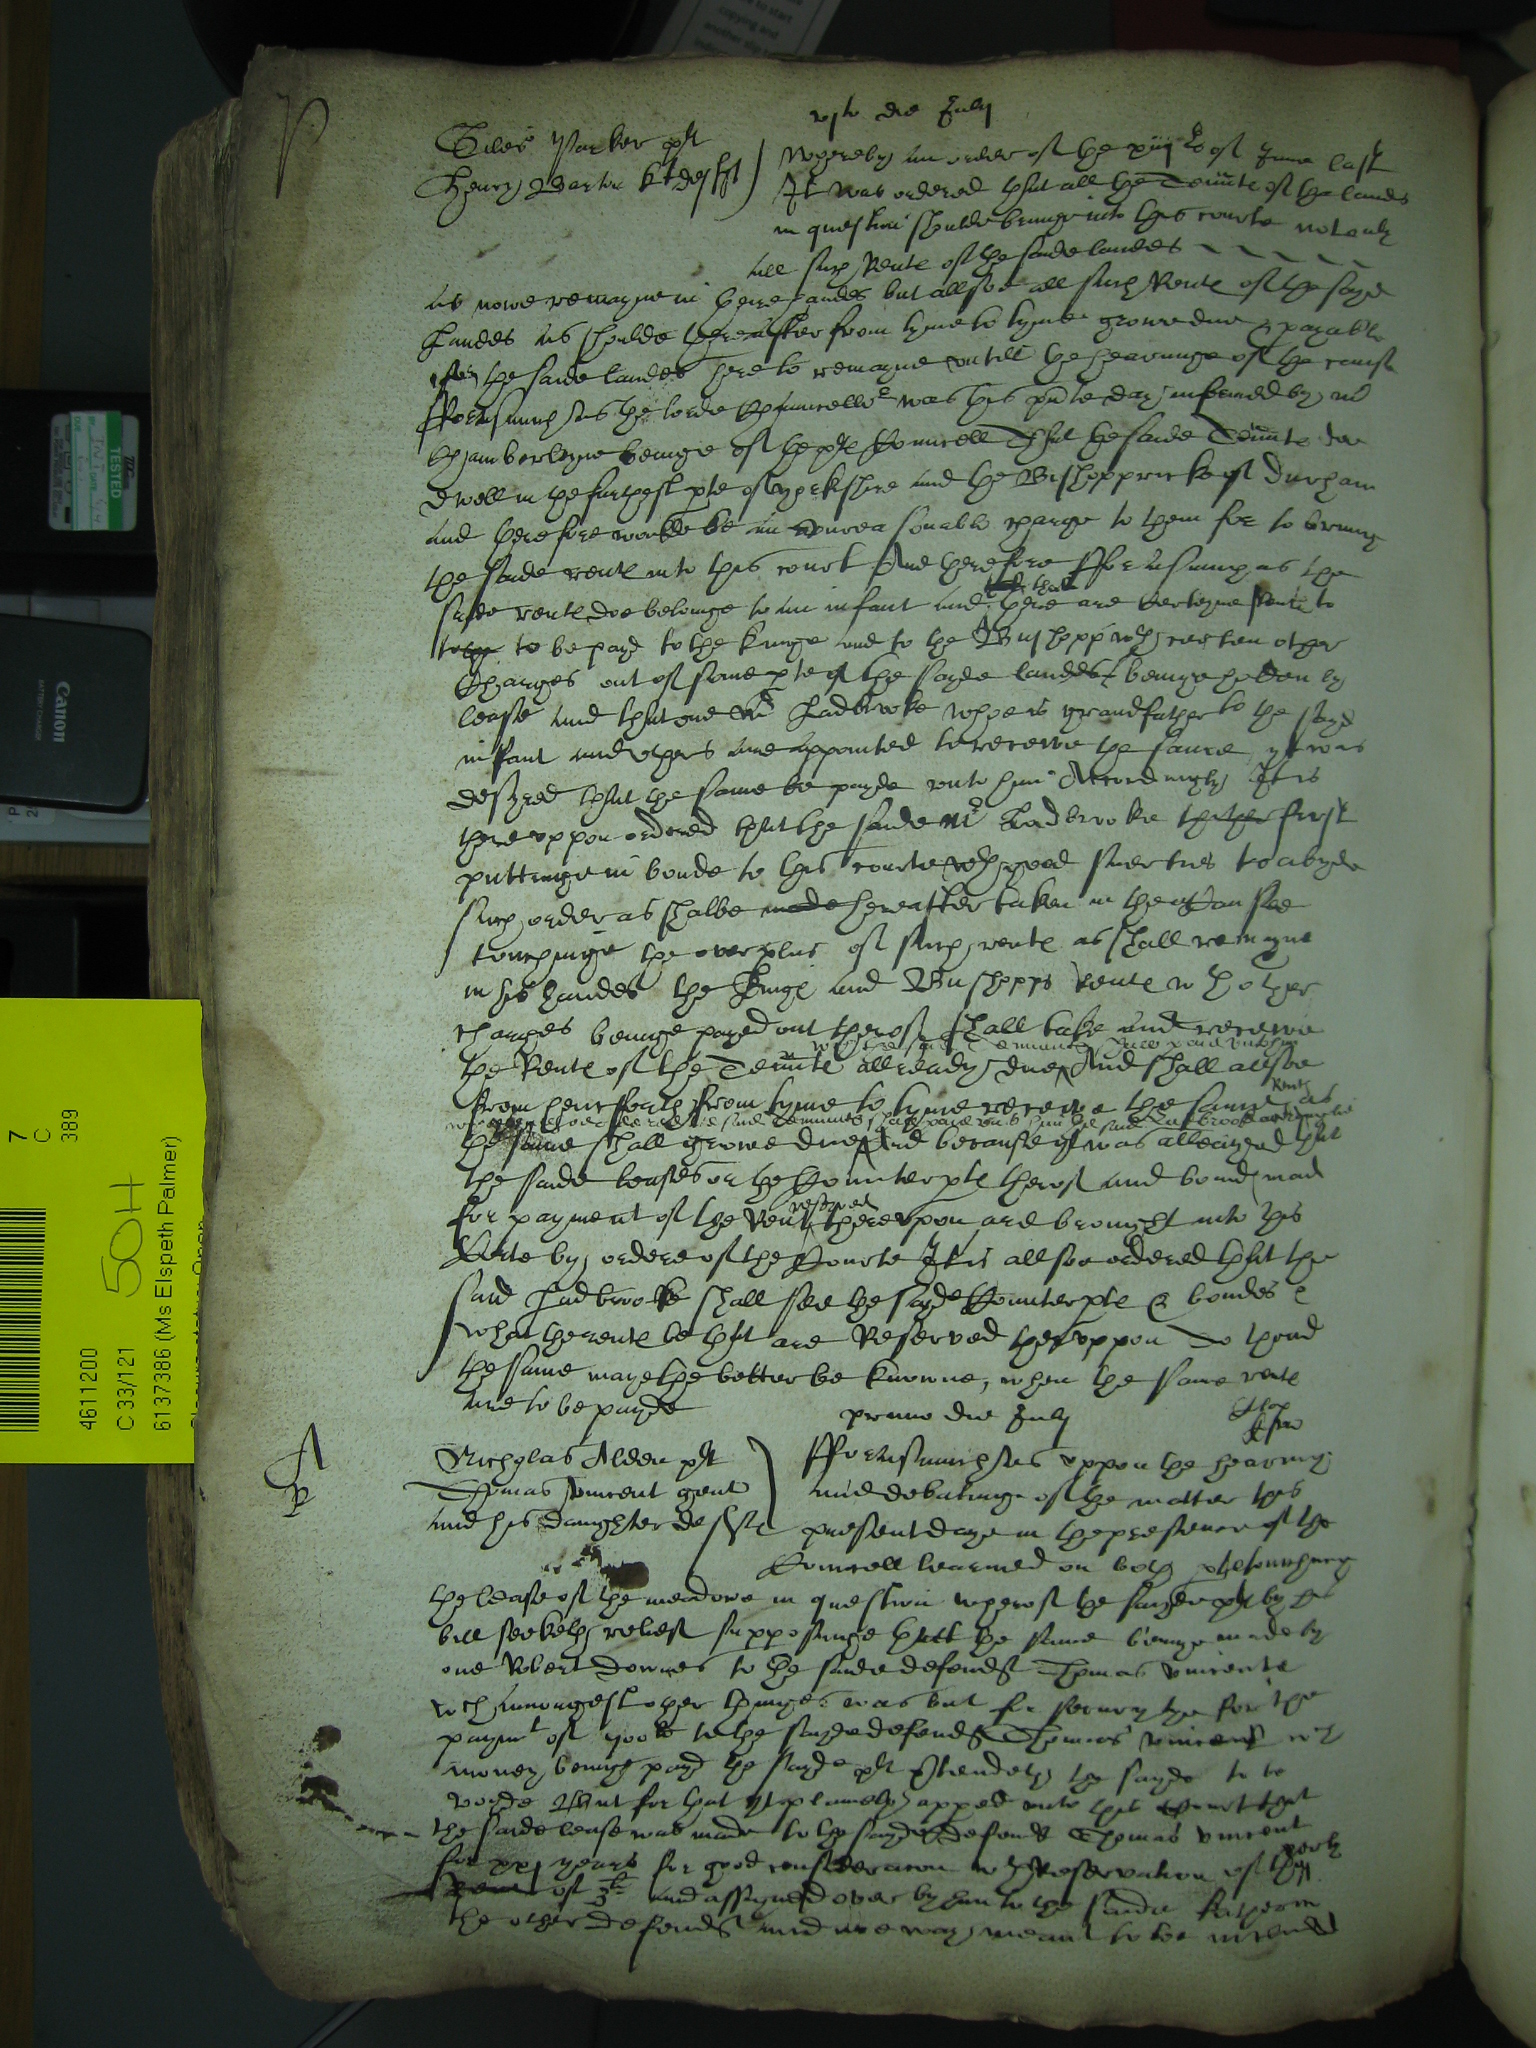 P
vjto die July
Giles Parker plt
Henry Barton kt deft
Whereby an order of the xiijth of June last
It was ordered that all the Tennts of the landes
in question shoulde bringe into this courte not only
all such Rente of the saide landes
as nowe remayne in theire handes but allsoe all such Rente of the sayd
Landes as shoulde hereafter from tyme to tyme growe due & payable
for the saide landes here to remayne untill the hearinge of the cause
Fforasmuch as the lorde Chauncellor was this pnte day informed by mr
Chamberlayne beinge of the plts Councell That the saide Tennts doe
dwell in the furthest pte of Yorkshire and the Bishoppricke of Durham
and therefore would be an unreasonable charge to them for to bringe
the saide rente into this court And therefore fforasmuch as the
saide rente doe belonge to an infant and that there are certeyne Rente to
to be payd to the Kinge and to the Bushopp wth certen other
Charges out of some pte of the sayde landes beinge holden by
lease and that one mr Ladbrooke whoe is grandfather to the sayd
infant and others are appointed to receive the same yt was
desyred that the same be payde unto him Accordingly It is
thereuppon ordered that the saide mr Ladbrooke first
puttinge in bonde to this courte wth good suerties to abyde
such order as shalbe made hereafter taken in the Cause
touchinge the overplus of such rente as shall remayne
in his handes the Kings and Bushopps Rente wth other
charges beinge payed out therof shall take and receive
the Rente of the Tennts allready due And shall allsoe
from henceforth from tyme to tyme receive the same Rents as
the same shall growe due And because yt was alleadged that
the saide leases or the Counterpte therof and bonds made
for payment of the Rent reserved thereupon are brought into this
Corte by ordere of the Courte It is allsoe ordered that the
said Ladbrooke shall see the sayde Counterpte & bondes &
what the rente be that are Reserved theruppon to thend
the same maye the better be knowne, when the same rente
are to be payde
primo die July
A
P
Nicholas Alden plt
Thomas Vincent gent
and his daughter defts
Fforasmuch as uppon the hearing
and debatinge of the matter this
present daye in the presence of the
Councell learned on both ptes touching
the lease of the meadowe in question wherof the sayde plt by his
bill seeketh relief supposinge that the same beinge made by
one Robert Downes to the saide defendt Thomas Vincente
wch amongest other thinges was but for securytye for the
paymt of 400li to the sayde defendt Thomas Vincent wch
money beinge payd the sayde plt ptendeth the sayde to be
voyde But for that yt playnely apped unto this Court that
the saide lease was made to the sayde defendt Thomas Vincent
for xxj years for good consideracon wth Reservation of the
of 3li and assigned over by him to the saide
the other defendt and noe way meant to be
TESTED
Canon
BATTERY CHARGER
copying and
another slip
7
C
389
50H
4611200
C 33/121
6137386 (Ms Elspeth Palmer)